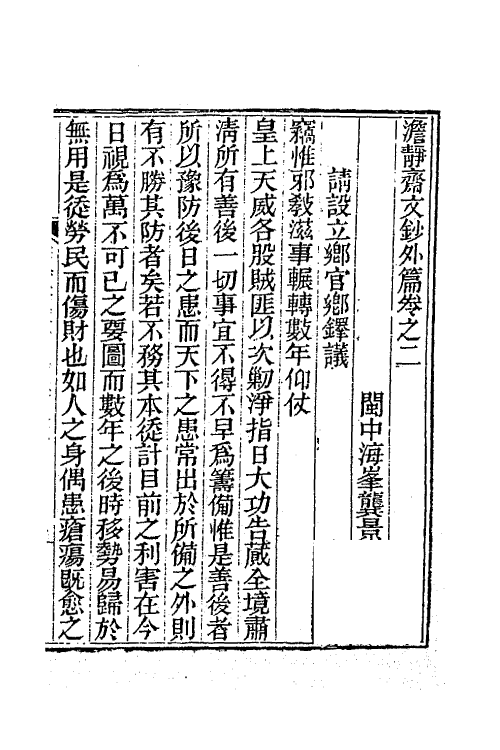 澹靜齋文鈔外篇卷之二
閩中海峯龔景
請設立鄉官鄉鐸議
竊惟邪敎滋事輾轉數年仰仗
皇上天威各股賊匪以次勦淨指日大功告蕆全境肅
淸所有善後一切事宜不得不早爲籌備惟是善後者
所以豫防後日之患而天下之患常出於所備之外則
有不勝其防者矣若不務其本徒計目前之利害在今
日視爲萬不可已之要圖而數年之後時移勢易歸於
無用是徒勞民而傷財也如人之身偶患瘡瘍旣愈之